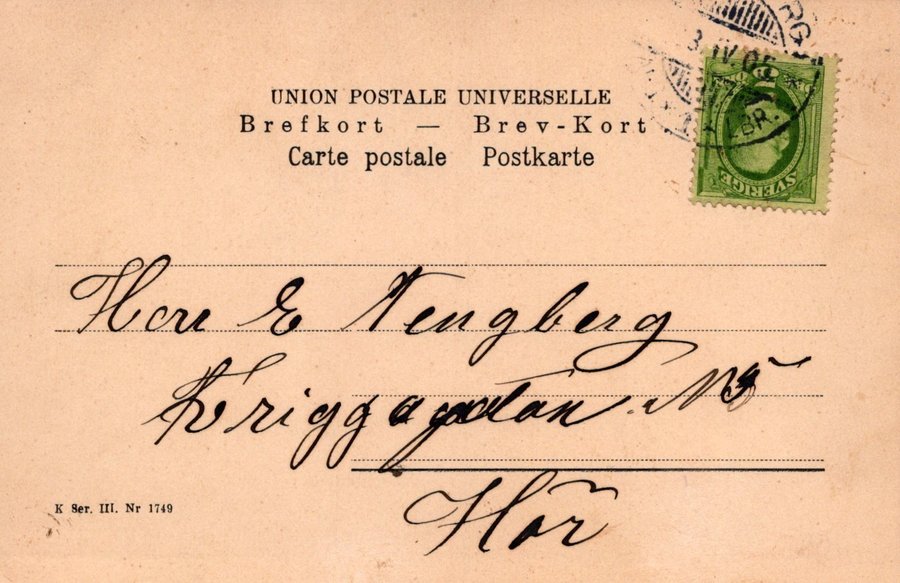 UNION POSTALE UNIVERSELLE
Brefkort — Brev-Kort
Carte postale Postkarte
SVERIGE
LBR.
Herr E Nengberg
Briggagatan N 5
Hör
K Ser. III. Nr 1749